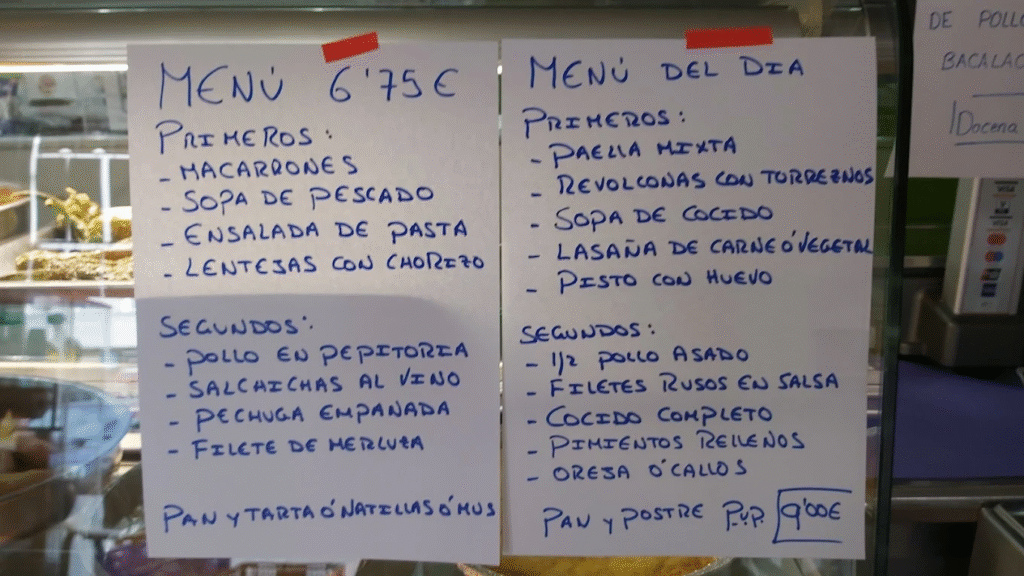 MENÚ 6'75€
PRIMEROS:
- MACARRONES
- SOPA DE PESCADO
- ENSALADA DE PASTA
- LENTEJAS CON CHORIZO
SEGUNDOS:
- POLLO EN PEPITORIA
- SALCHICHAS AL VINO
- PECHUGA EMPANADA
- FILETE DE MERLUZA
PAN Y TARTA Ó NATILLAS Ó MUS
MENÚ DEL DIA
PRIMEROS:
- PAELLA MIXTA
- REVOLCONAS CON TORREZNOS
- SOPA DE COCIDO
- LASAÑA DE CARNE Ó VEGETAL
- PISTO CON HUEVO
SEGUNDOS:
- 1/2 POLLO ASADO
- FILETES RUSOS EN SALSA
- COCIDO COMPLETO
- PIMIENTOS RELLENOS
- OREJA Ó CALLOS
PAN Y POSTRE P.V.P. 9'00€
DE POLLO
BACALAO
Docena